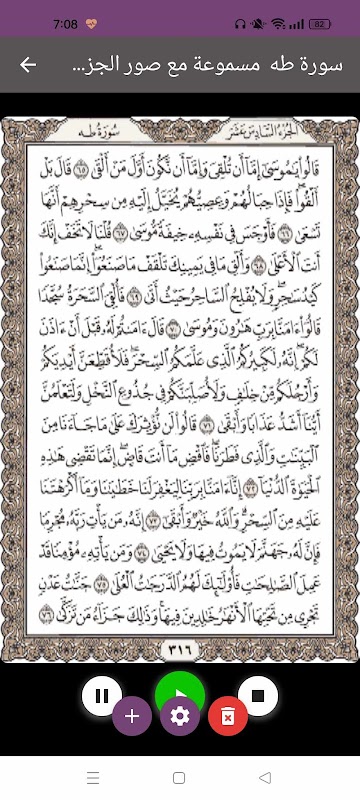 7:08
82
سورة طه مسموعة مع صور الجز...
الجزء السادس عشر
سورة طه
قَالُوا۟ يَٰمُوسَىٰٓ إِمَّآ أَن تُلْقِىَ وَإِمَّآ أَن نَّكُونَ أَوَّلَ مَنْ أَلْقَىٰ ٦٥ قَالَ بَلْ
أَلْقُوا۟ فَإِذَا حِبَالُهُمْ وَعِصِيُّهُمْ يُخَيَّلُ إِلَيْهِ مِن سِحْرِهِمْ أَنَّهَا
تَسْعَىٰ ٦٦ فَأَوْجَسَ فِى نَفْسِهِۦ خِيفَةً مُّوسَىٰ ٦٧ قُلْنَا لَا تَخَفْ إِنَّكَ
أَنتَ ٱلْأَعْلَىٰ ٦٨ وَأَلْقِ مَا فِى يَمِينِكَ تَلْقَفْ مَا صَنَعُوٓا۟ إِنَّمَا صَنَعُوا۟
كَيْدُ سَٰحِرٍ وَلَا يُفْلِحُ ٱلسَّاحِرُ حَيْثُ أَتَىٰ ٦٩ فَأُلْقِىَ ٱلسَّحَرَةُ سُجَّدًا
قَالُوٓا۟ ءَامَنَّا بِرَبِّ هَٰرُونَ وَمُوسَىٰ ٧٠ قَالَ ءَامَنتُمْ لَهُۥ قَبْلَ أَنْ ءَاذَنَ
لَكُمْ إِنَّهُۥ لَكَبِيرُكُمُ ٱلَّذِى عَلَّمَكُمُ ٱلسِّحْرَ فَلَأُقَطِّعَنَّ أَيْدِيَكُمْ
وَأَرْجُلَكُم مِّنْ خِلَٰفٍ وَلَأُصَلِّبَنَّكُمْ فِى جُذُوعِ ٱلنَّخْلِ وَلَتَعْلَمُنَّ
أَيُّنَآ أَشَدُّ عَذَابًا وَأَبْقَىٰ ٧١ قَالُوا۟ لَن نُّؤْثِرَكَ عَلَىٰ مَا جَآءَنَا مِنَ
ٱلْبَيِّنَٰتِ وَٱلَّذِى فَطَرَنَا فَٱقْضِ مَآ أَنتَ قَاضٍ إِنَّمَا تَقْضِى هَٰذِهِ
ٱلْحَيَوٰةَ ٱلدُّنْيَآ ٧٢ إِنَّآ ءَامَنَّا بِرَبِّنَا لِيَغْفِرَ لَنَا خَطَٰيَٰنَا وَمَآ أَكْرَهْتَنَا
عَلَيْهِ مِنَ ٱلسِّحْرِ وَٱللَّهُ خَيْرٌ وَأَبْقَىٰٓ ٧٣ إِنَّهُۥ مَن يَأْتِ رَبَّهُۥ مُجْرِمًا
فَإِنَّ لَهُۥ جَهَنَّمَ لَا يَمُوتُ فِيهَا وَلَا يَحْيَىٰ ٧٤ وَمَن يَأْتِهِۦ مُؤْمِنًا قَدْ
عَمِلَ ٱلصَّٰلِحَٰتِ فَأُو۟لَٰٓئِكَ لَهُمُ ٱلدَّرَجَٰتُ ٱلْعُلَىٰ ٧٥ جَنَّٰتُ عَدْنٍ
تَجْرِى مِن تَحْتِهَا ٱلْأَنْهَٰرُ خَٰلِدِينَ فِيهَا وَذَٰلِكَ جَزَآءُ مَن تَزَكَّىٰ ٧٦
٣١٦